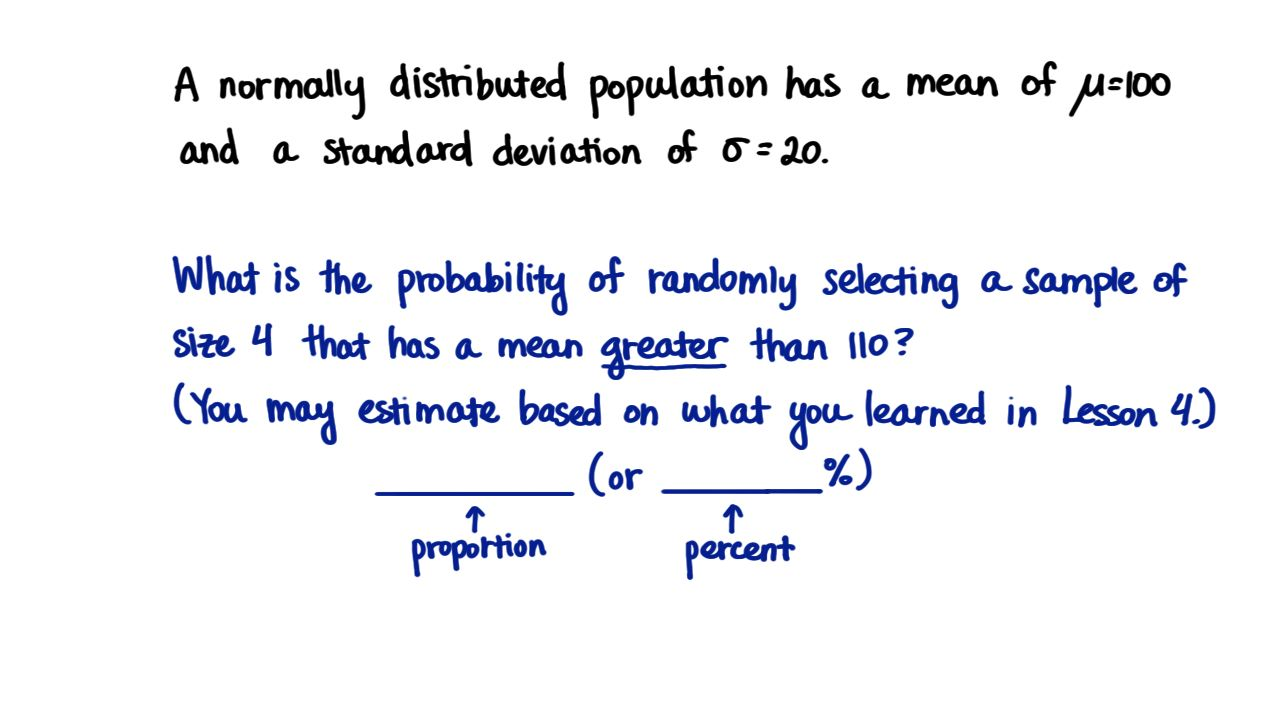 A normally distributed population has a mean of μ=100
and a standard deviation of σ=20.
What is the probability of randomly selecting a sample of
size 4 that has a mean greater than 110?
(You may estimate based on what you learned in Lesson 4.)
__________ (or ________%)
↑ ↑
proportion percent